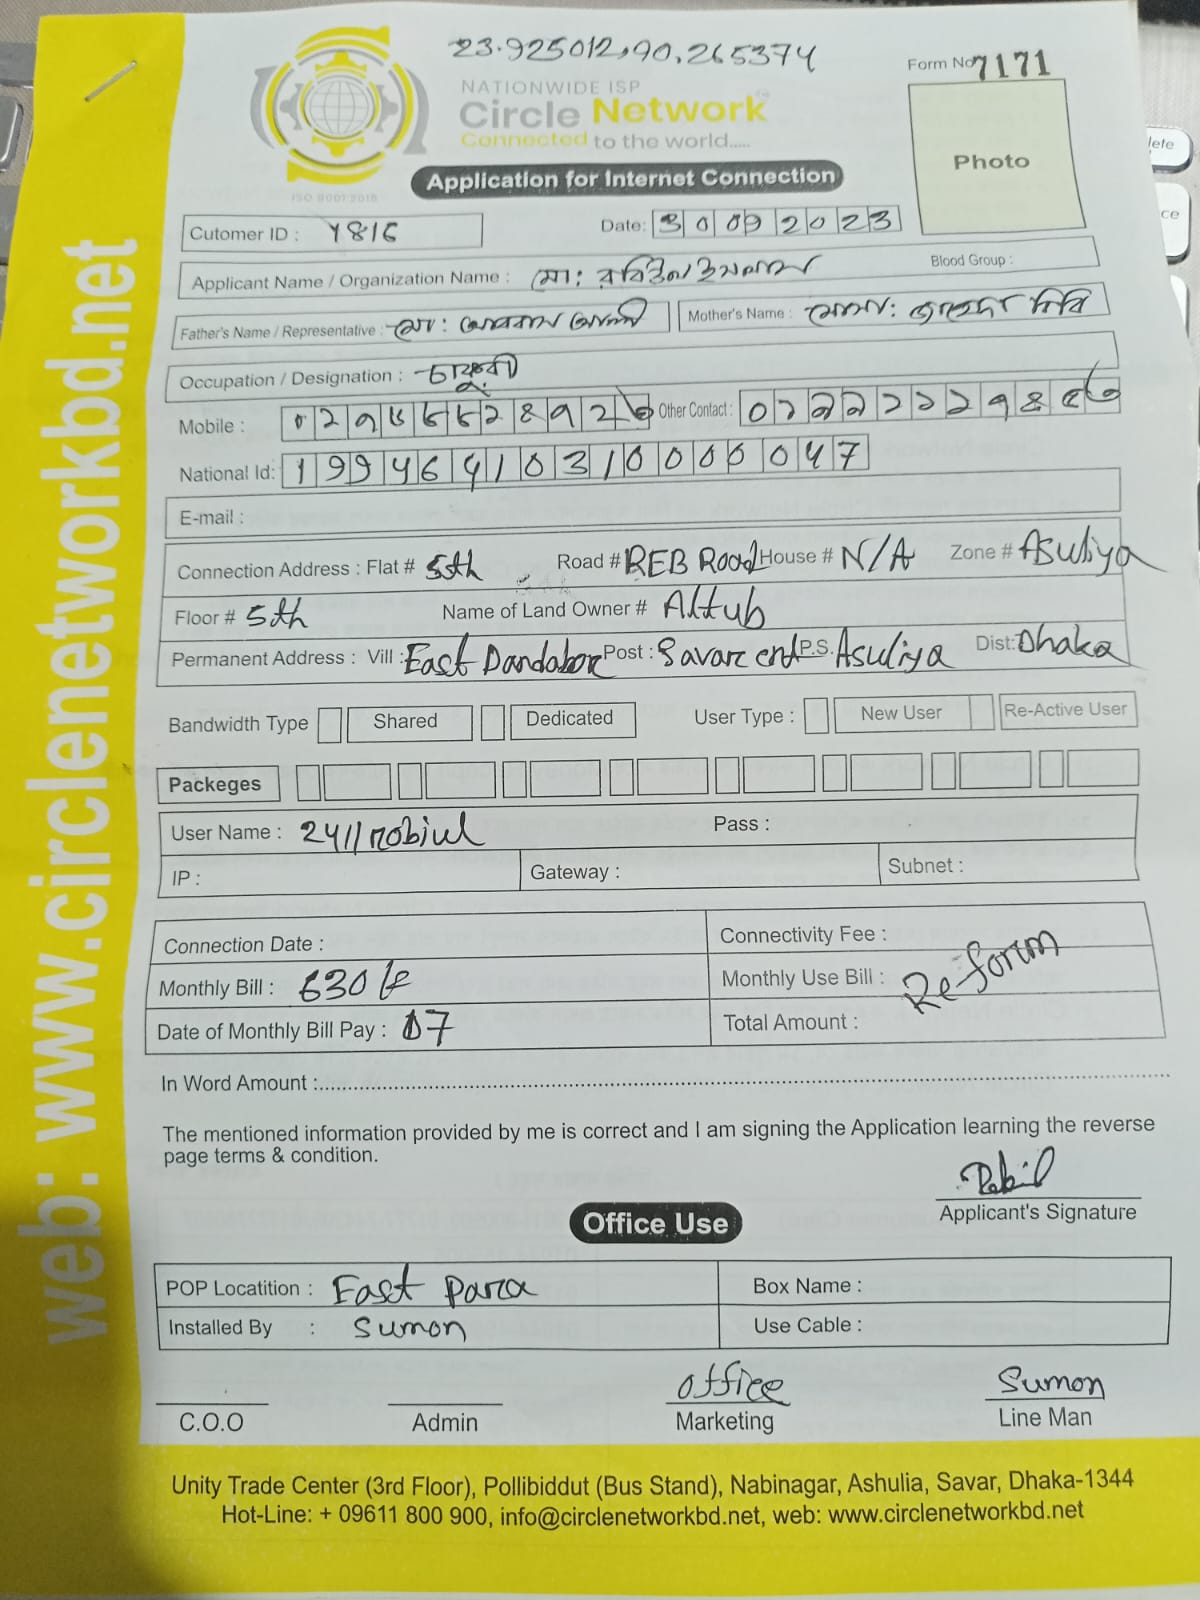 23.925012,90.265374
Form No 7171
NATIONWIDE ISP
Circle Network
Connected to the world.....
ISO 9001:2015
Photo
Application for Internet Connection
Cutomer ID : 4816
Date: 30092023
Applicant Name / Organization Name : মো: রবিউল ইসলাম
Blood Group :
Father's Name / Representative : মো:
Mother's Name :
Occupation / Designation : চাকুরী
Mobile :
Other Contact :
National Id: 19946410310000047
E-mail :
Connection Address : Flat # 5th Road # REB Road House # N/A Zone # Asuliya
Floor # 5th Name of Land Owner # Altub
Permanent Address : Vill : East Dandabor Post : Savar cent P.S. Asuliya Dist: Dhaka
Bandwidth Type Shared Dedicated User Type : New User Re-Active User
Packeges
User Name : 2411robiul Pass :
IP : Gateway : Subnet :
Connection Date : Connectivity Fee :
Monthly Bill : 630 Monthly Use Bill : Re-form
Date of Monthly Bill Pay : 07 Total Amount :
In Word Amount :
The mentioned information provided by me is correct and I am signing the Application learning the reverse
page terms & condition.
Robiul
Applicant's Signature
Office Use
POP Locatition : East Para Box Name :
Installed By : Sumon Use Cable :
office Sumon
C.O.O Admin Marketing Line Man
Unity Trade Center (3rd Floor), Pollibiddut (Bus Stand), Nabinagar, Ashulia, Savar, Dhaka-1344
Hot-Line: + 09611 800 900, info@circlenetworkbd.net, web: www.circlenetworkbd.net
web: www.circlenetworkbd.net